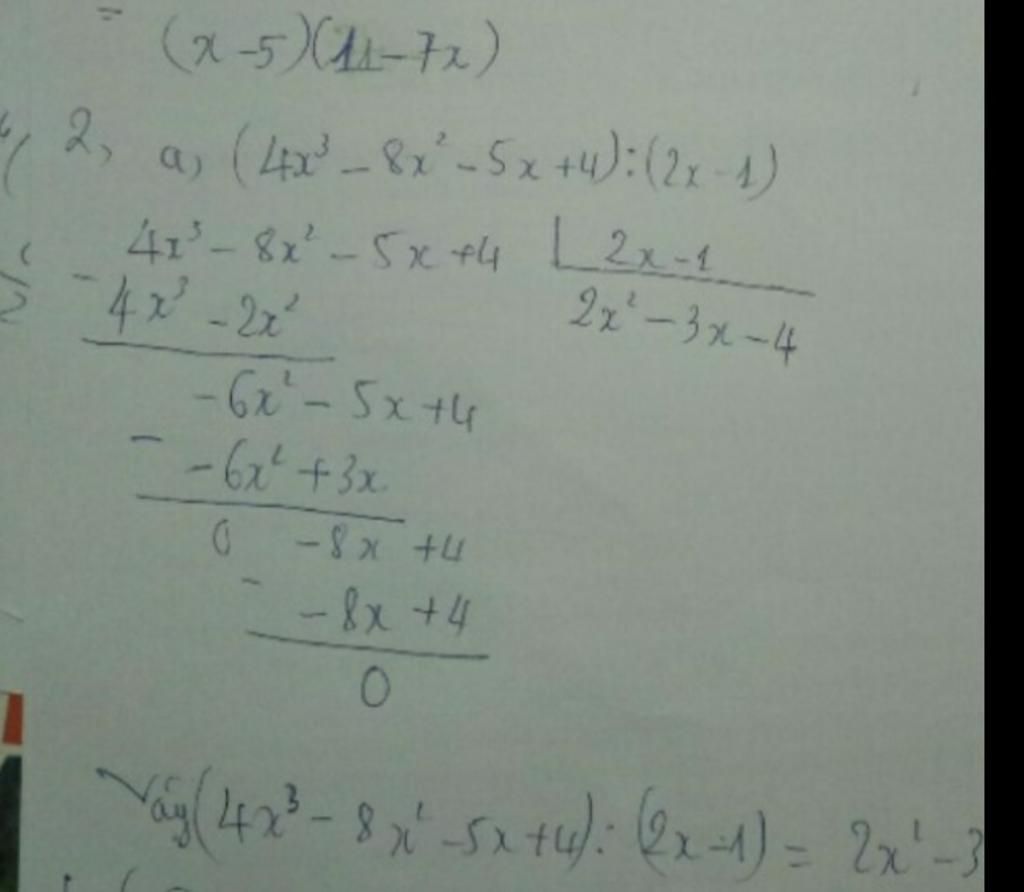 =
(x-5)(11-7x)
2, a, (4x³ - 8x² - 5x +4):(2x-1)
4x³ - 8x² - 5x +4 2x-1
- 4x³ - 2x² 2x² - 3x - 4
-6x² - 5x +4
- -6x² +3x
0 -8x +4
- -8x +4
0
Vậy (4x³ - 8x² - 5x +4): (2x-1) = 2x² - 3